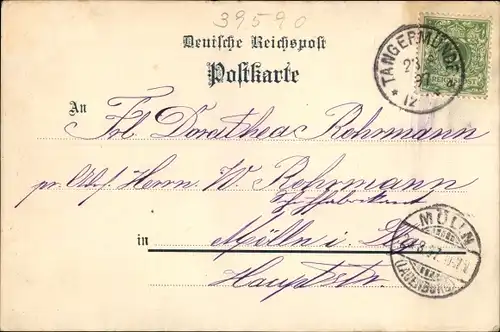 39590
Deutsche Reichspost
Postkarte
TANGERMÜNDE
12
An Frl. Dorothea Rohrmann
pr. Adr. Herrn W. Rohrmann
in Mölln i. Lbg
MÖLLN
(LAUENBURG)
Hauptstr.